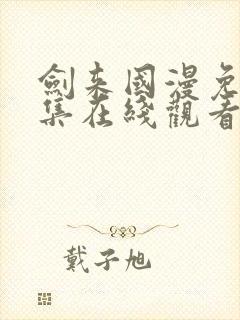 劍来國漫免
集在綫觀看
戴子旭